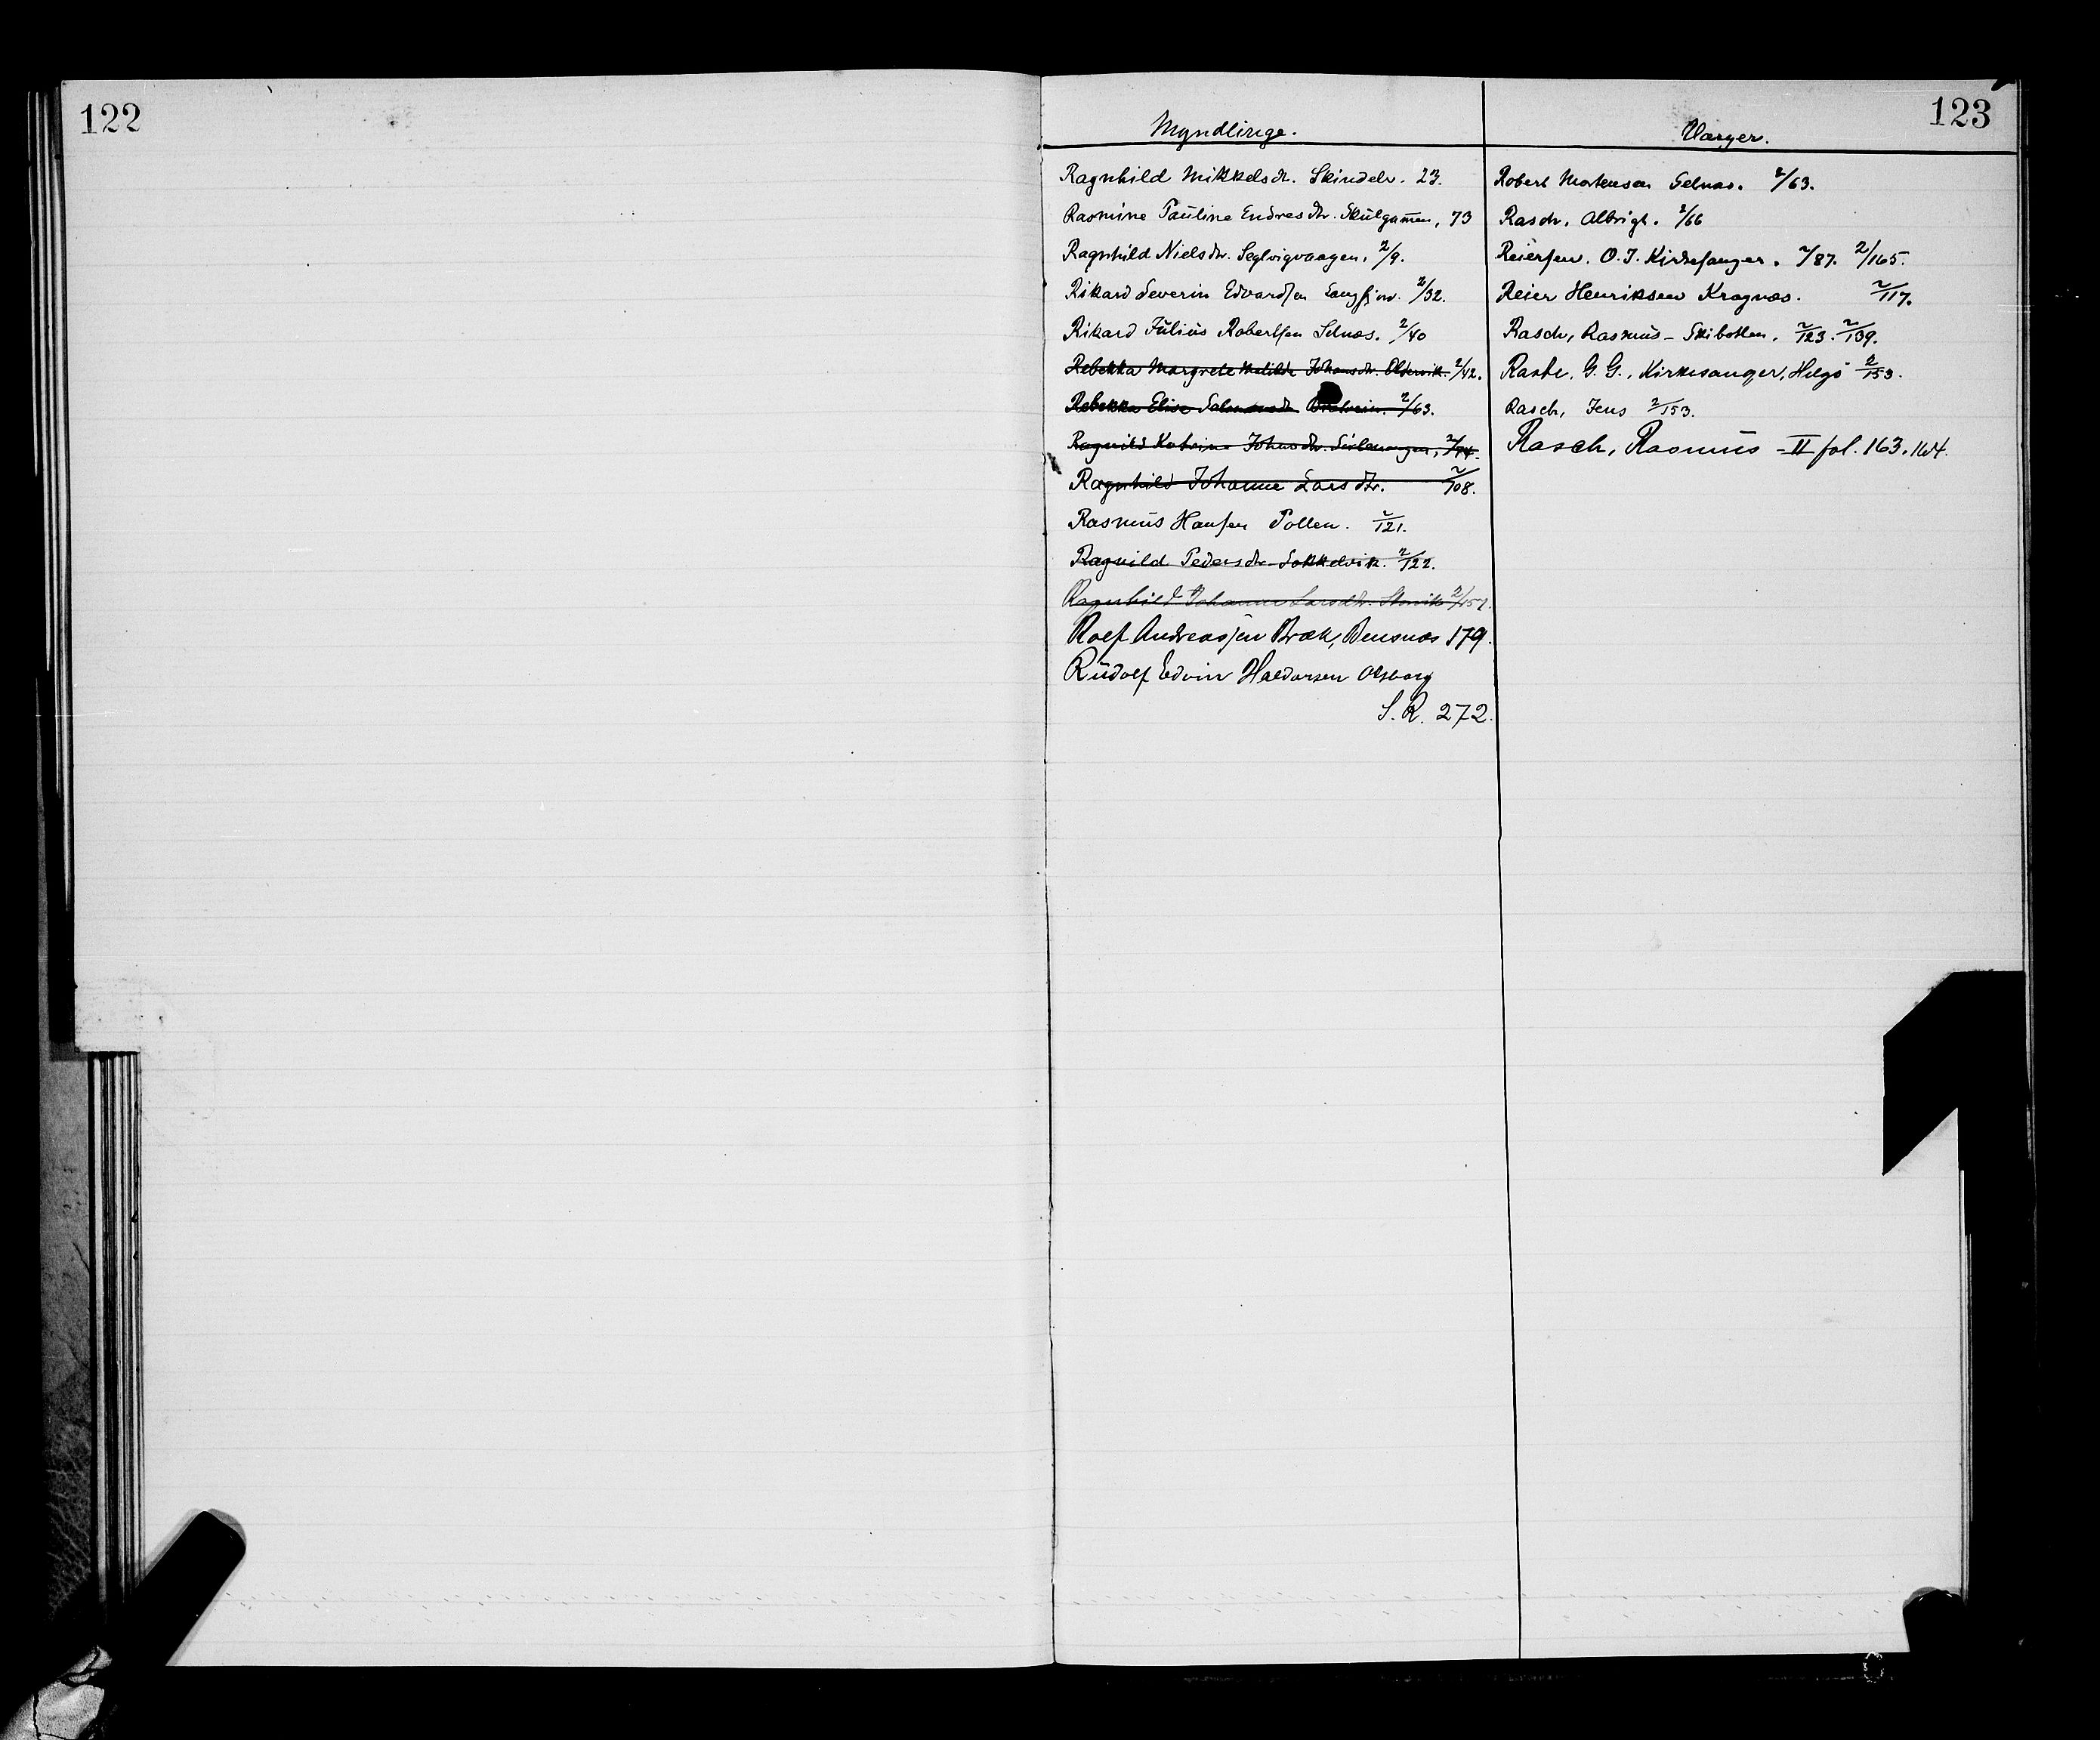 122
123
Myndlinge.
Værger.
Ragnhild Mikkelsdr. Skindelv. 23.
Rasmine Pauline Endresdtr. Skulgammen, 73
Ragnhild Nielsdtr. Seglvigvaagen, 2/9.
Rikard Severin Edvardsen Langfjord. 2/32.
Rikard Julius Robertsen Selnæs. 2/40
Rebekka Margrete Matilde Johansdtr. Oldervik. 2/42.
Rebekka Elise 2/63.
Ragnild Katrine Johnsdtr. 2/74.
Ragnhild Johanne Larsdtr. 2/108.
Rasmus Hansen Pollen. 2/121.
Ragnild Pedersdtr. Sokkelvik. 2/122.
Ragnhild Johanne Larsdtr. 2/157.
Rolf Andreassen Bræk, Bensnæs 179.
Rudolf Edvin Haldorsen Olsborg
S. R. 272.
Robert Mortensen Selnæs. 2/63.
Rasch, Albrigt. 2/66
Reiersen. O. J. Kirkesanger. 2/87. 2/165.
Reier Henriksen Kragnæs. 2/117.
Rasch, Rasmus - Skibotten. 2/123. 2/139.
Raste, G. G., Kirkesanger, Helgö 2/153.
Rasch, Jens 2/153.
Rasch, Rasmus - II fol. 163. 164.